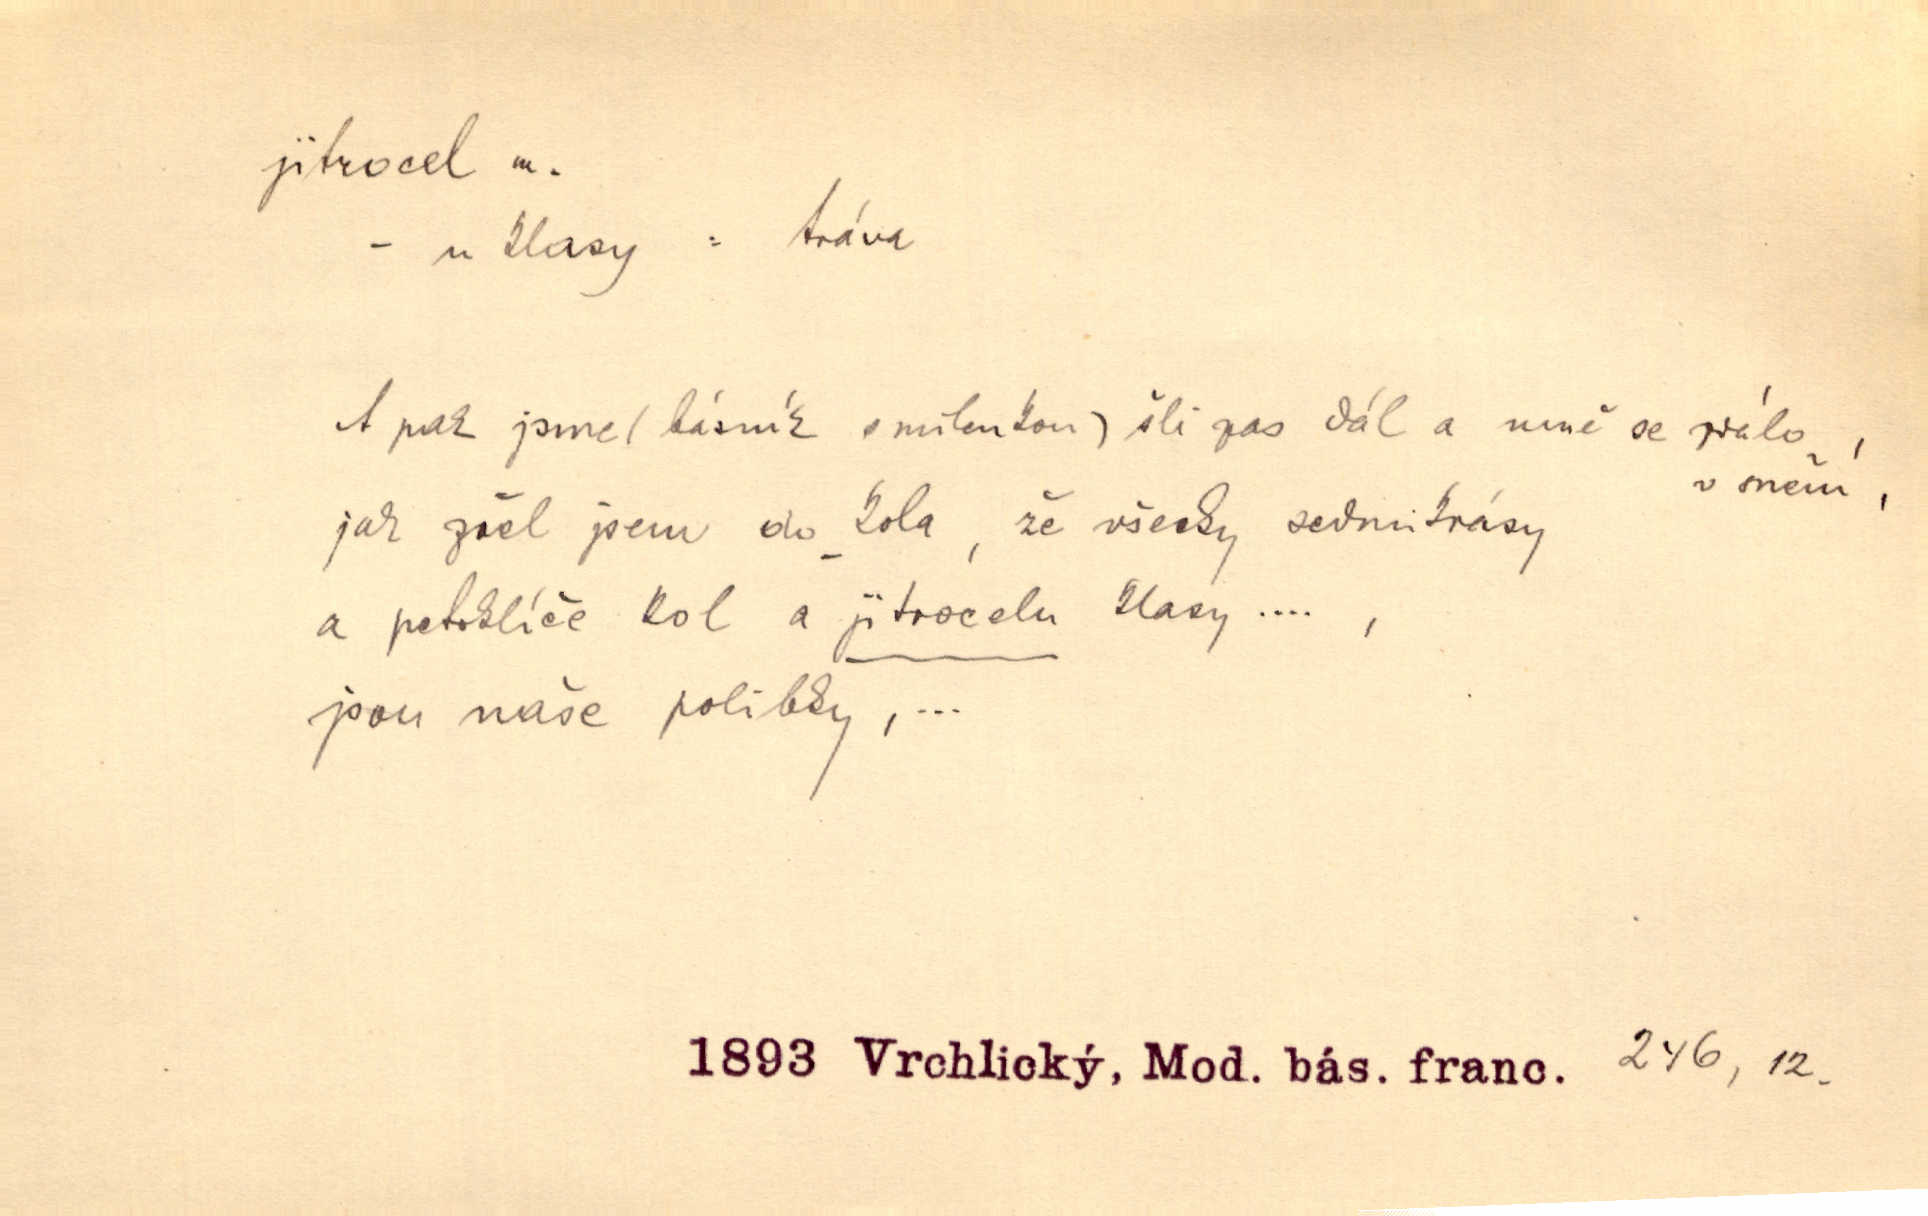 jitrocel m.
- u klasy = tráva
A pak jsme (básník s milenkou) šli zas dál a mně se zdálo,
v snění,
jak zřel jsem do kola, že všecky sedmikrásy
a petrklíče kol a jitrocelu klasy .... ,
jsou naše polibky, ...
1893 Vrchlický, Mod. bás. franc. 246, 12.